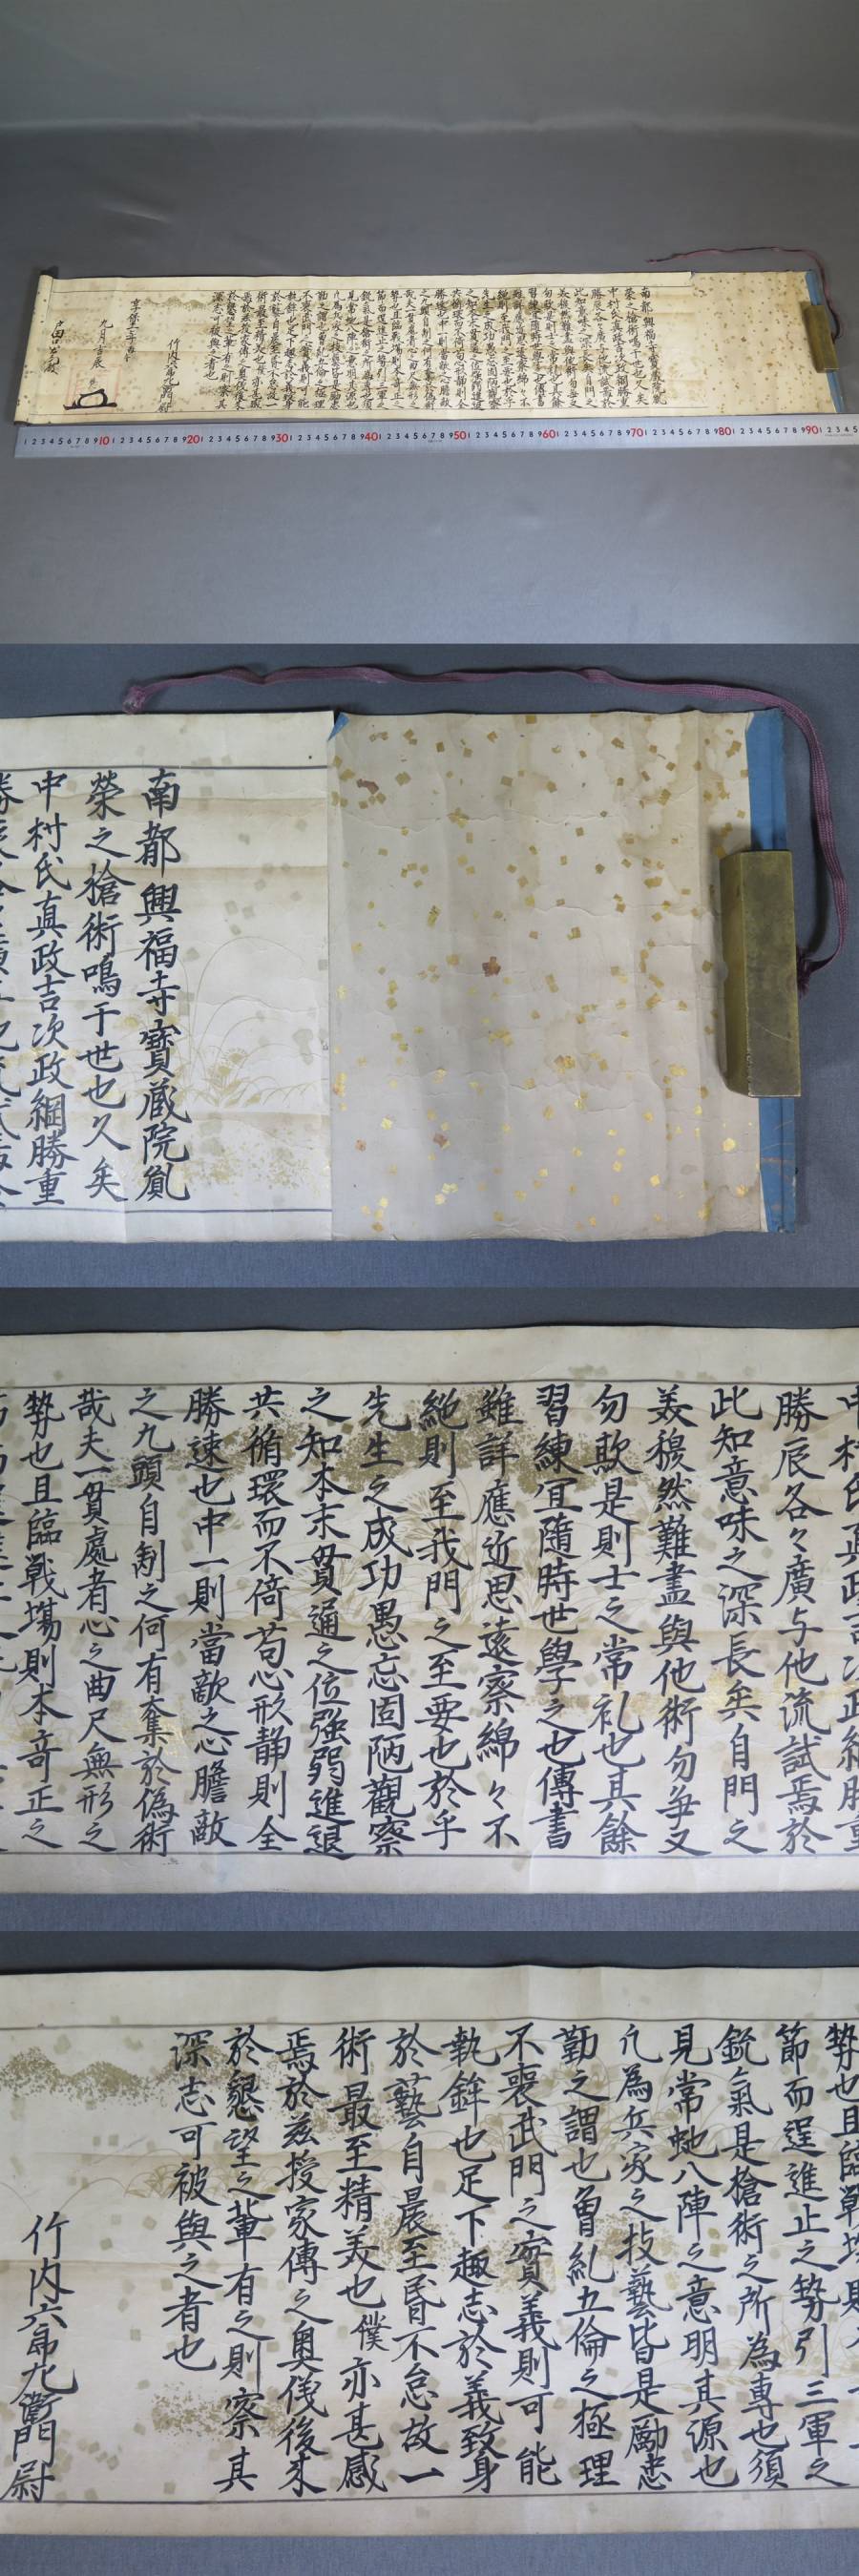 南都興福寺寶蔵院胤
榮之槍術鳴于世也久矣
中村氏真政吉次政綱勝重
勝辰各々廣与他流試焉於
此知意味之深長矣自門之
美穆然難盡與他術勿爭又
勿欺是則士之常礼也其餘
習練宜隨時世學之也傳書
雖詳應近思遠察綿々不
絶則至我門之至要也於乎
先生之成功愚忘固陋觀察
之知本末貫通之位強弱進退
共循環而不倚苟心形静則全
勝速也中一則當敵之心膽敵
之九頭自制之何有奪於偽術
哉夫一貫處者心之曲尺無形之
勢也且臨戦場則本奇正之
節而逞進止之勢引三軍之
鋭氣是槍術之所為專也須
見常虵八陣之意明其源也
凡為兵家之技藝皆是勵忠
勤之謂也曽乱五倫之極理
不喪武門之實義則可能
執鋒也足下趣志於義致身
於藝自晨至昏不怠故一
術最至精美也僕亦甚感
焉於茲授家傳之奥伎後来
於懇望之輩有之則察其
深志可被與之者也
竹内六郎九衛門尉
九月